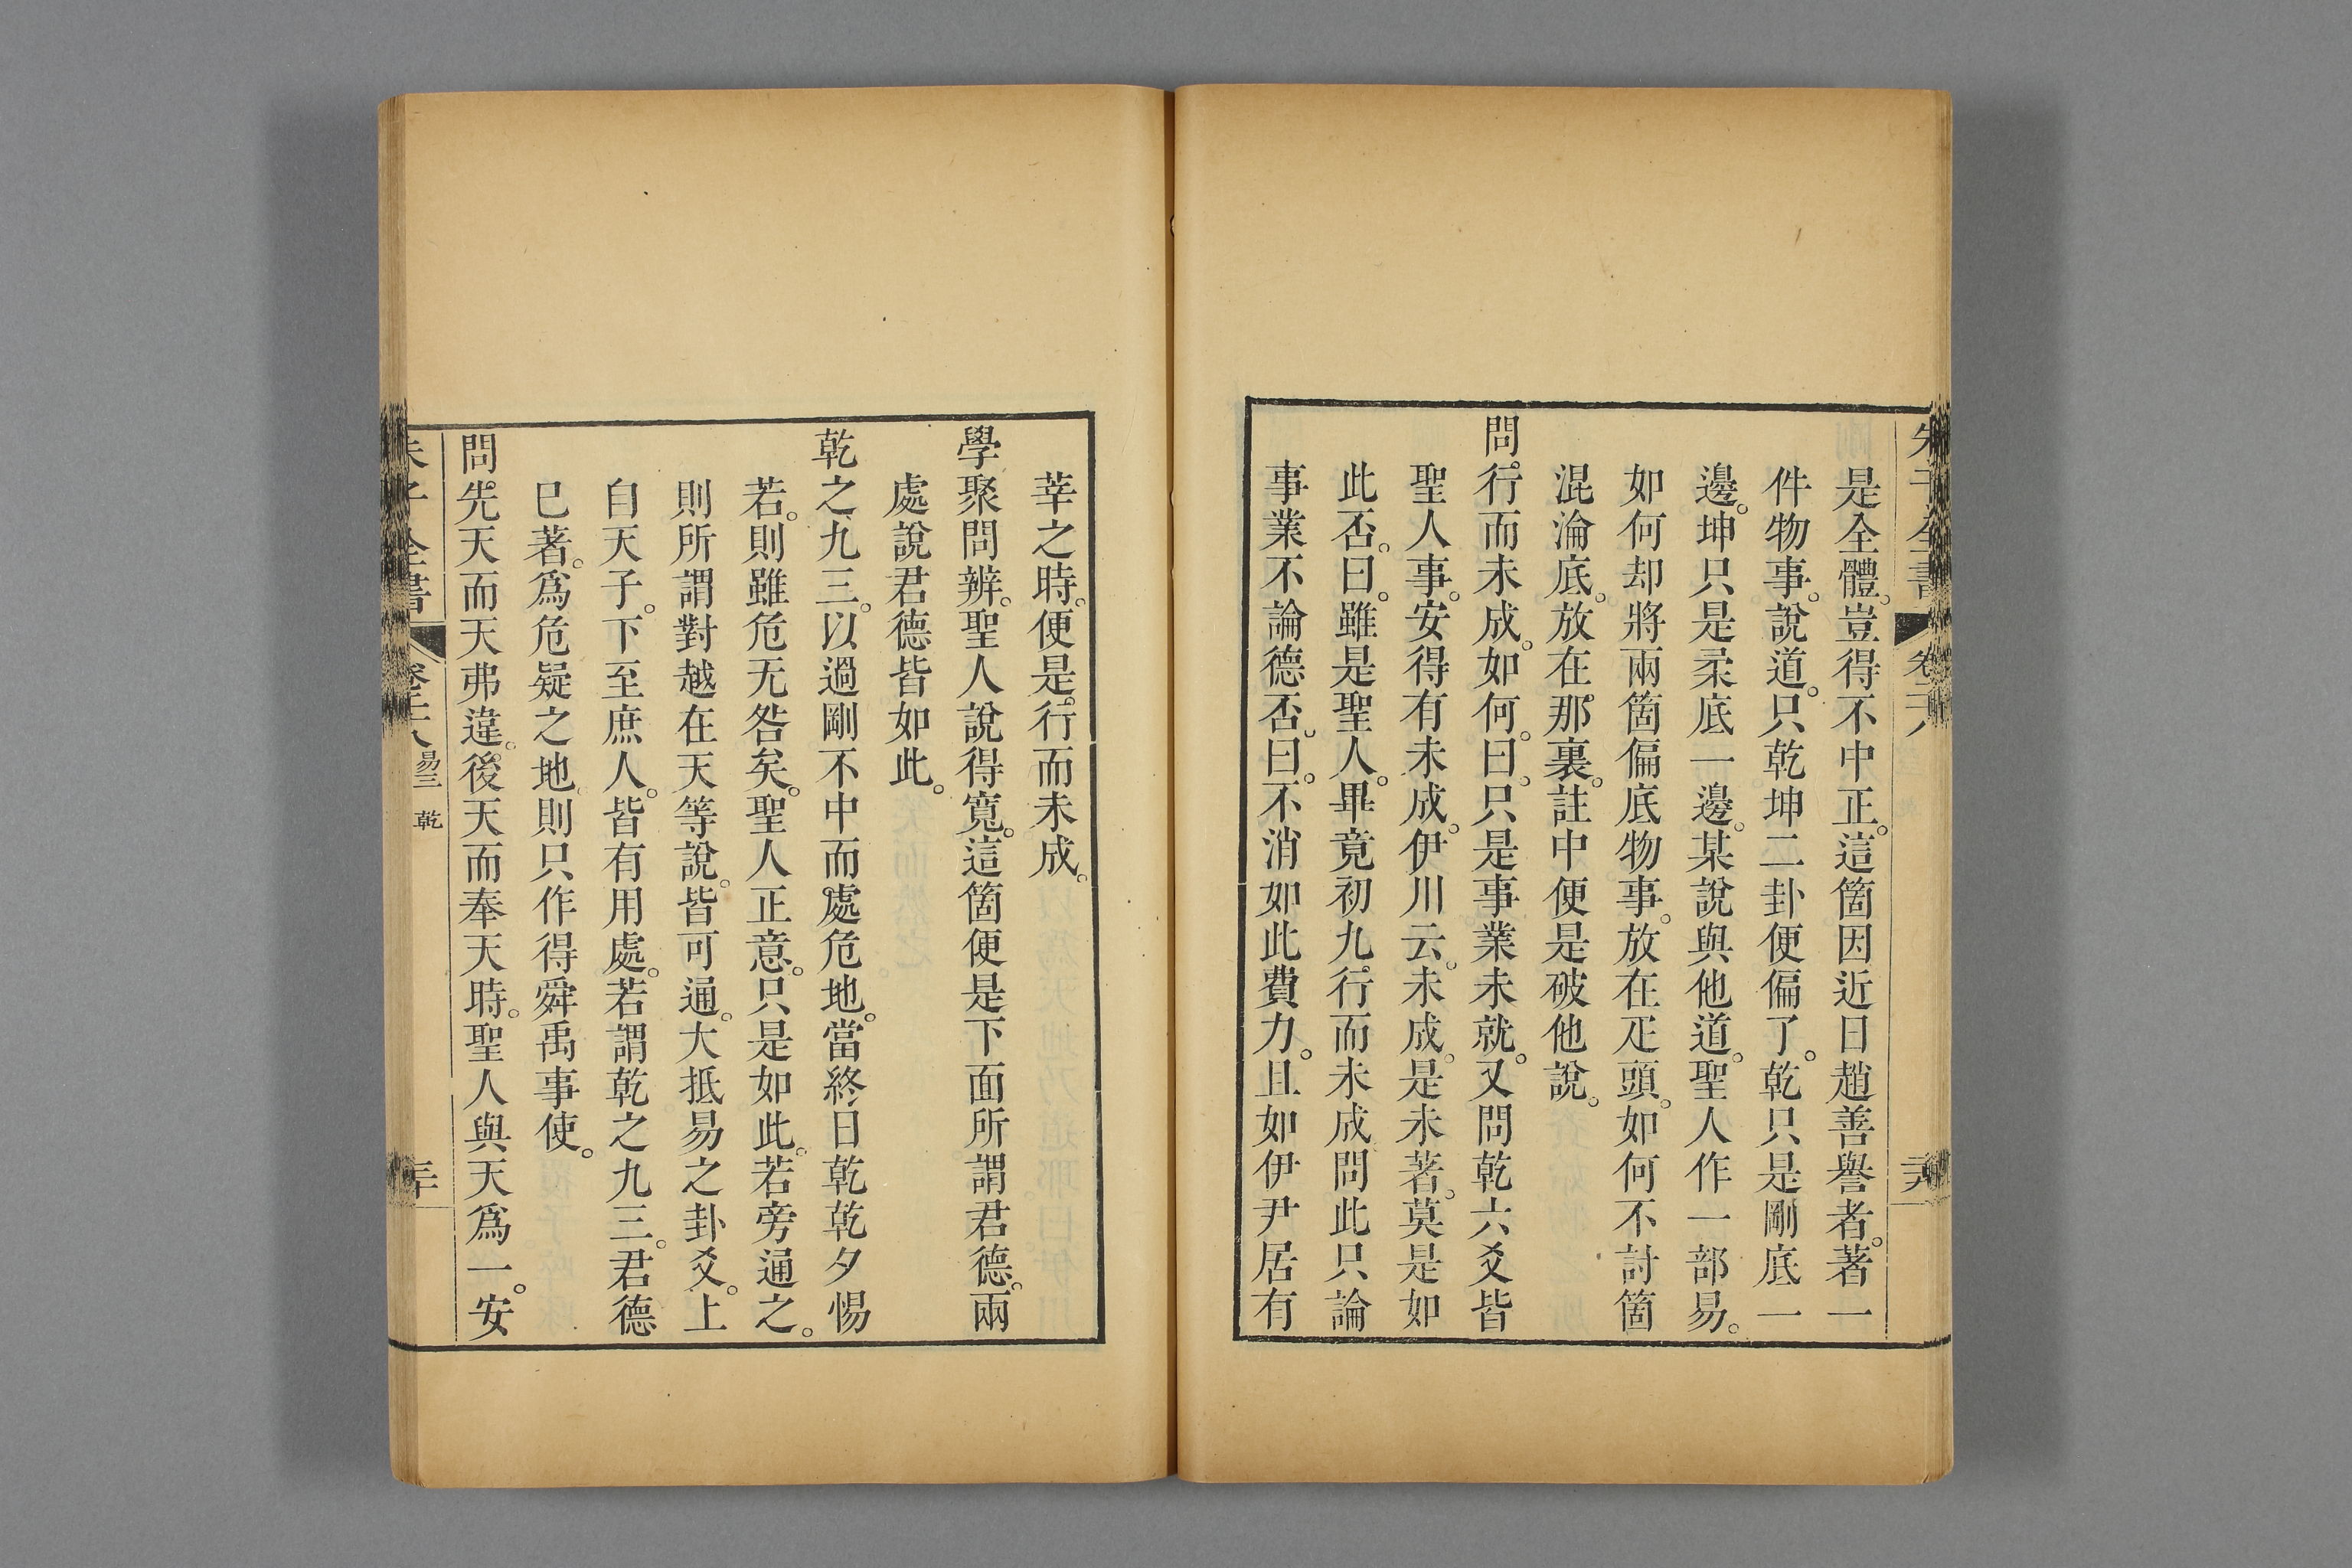 是全體。豈得不中正。這箇因近日趙善譽者。著一
件物事。說道。只乾坤二卦便偏了。乾只是剛底一
邊。坤只是柔底一邊。某說與他道。聖人作一部易。
如何却將兩箇偏底物事。放在疋頭。如何不討箇
混淪底。放在那裏。註中便是破他說。
問。行而未成。如何。曰。只是事業未就。又問乾六爻皆
聖人事。安得有未成。伊川云。未成。是未著。莫是如
此否。曰。雖是聖人。畢竟初九。行而未成。問此只論
事業不論德否。曰。不消如此費力。且如伊尹居有
莘之時。便是。行而未成。
學聚問辨。聖人說得寬。這箇便是下面所謂君德。兩
處說君德皆如此。
乾之九三。以過剛不中而處危地。當終日乾乾夕惕
若。則雖危无咎矣。聖人正意。只是如此。若旁通之。
則所謂對越在天等說。皆可通。大抵易之卦爻。上
自天子。下至庶人。皆有用處。若謂乾之九三。君德
已著。爲危疑之地。則只作得舜禹事使。
問。先天而天弗違。後天而奉天時。聖人與天爲一。安
易三 乾